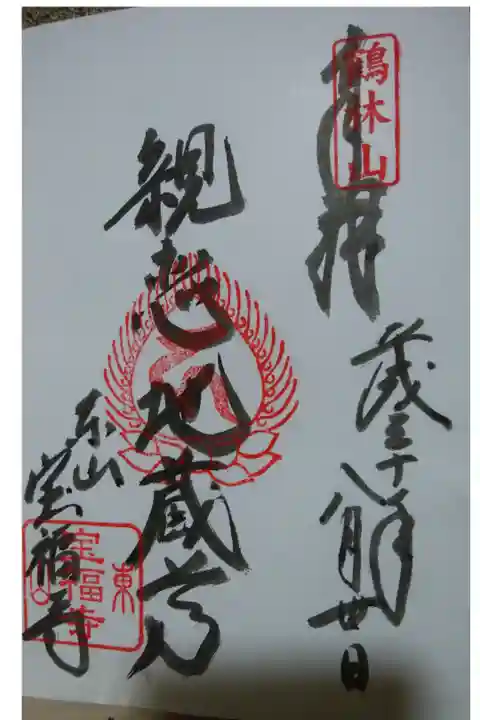 奉拝
鶴林山
平成三十年八月廿日
地蔵尊
東山
宝福寺
東山
宝福寺